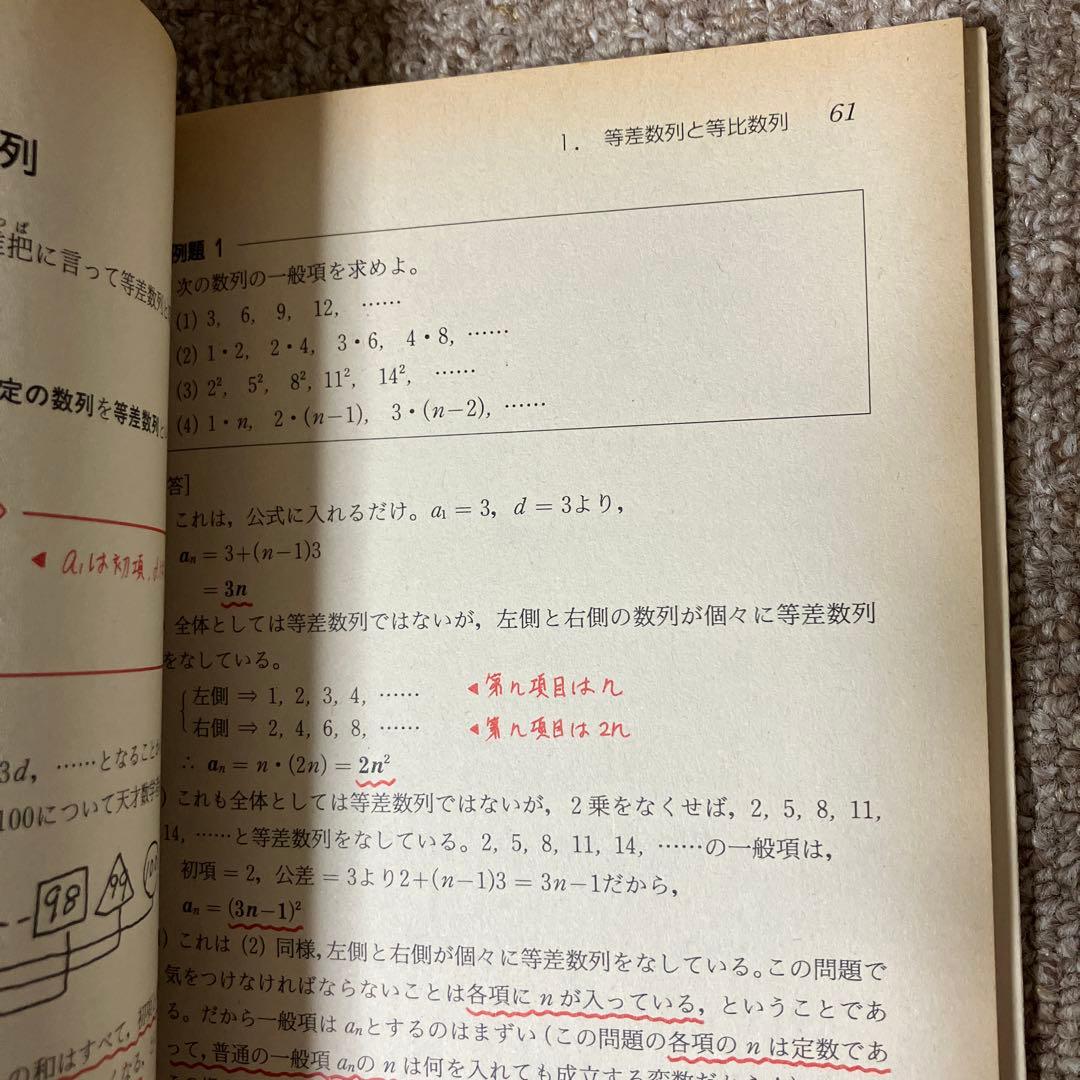 列
つば
把に言って等差数列
定の数列を等差数列
◀ a₁は初項,
3d, ……となることか
100について天才数学者
98 99 100
の和はすべて, 初項
1. 等差数列と等比数列 61
例題 1
次の数列の一般項を求めよ。
(1) 3, 6, 9, 12, ……
(2) 1・2, 2・4, 3・6, 4・8, ……
(3) 2², 5², 8², 11², 14², ……
(4) 1・n, 2・(n−1), 3・(n−2), ……
答]
これは, 公式に入れるだけ。a₁ = 3, d = 3より,
aₙ = 3+(n−1)3
= 3n
全体としては等差数列ではないが, 左側と右側の数列が個々に等差数列
をなしている。
左側 ⇒ 1, 2, 3, 4, …… ◀第n項目はn
右側 ⇒ 2, 4, 6, 8, …… ◀第n項目は2n
∴ aₙ = n・(2n) = 2n²
) これも全体としては等差数列ではないが, 2乗をなくせば, 2, 5, 8, 11,
14, ……と等差数列をなしている。2, 5, 8, 11, 14, ……の一般項は,
初項 = 2, 公差 = 3より2+(n−1)3 = 3n−1だから,
aₙ = (3n−1)²
) これは (2) 同様, 左側と右側が個々に等差数列をなしている。この問題で
気をつけなければならないことは各項に n が入っている, ということであ
る。だから一般項は aₙとするのはまずい (この問題の各項の n は定数であ
って, 普通の一般項 aₙの n は何を入れても成立する変数だから